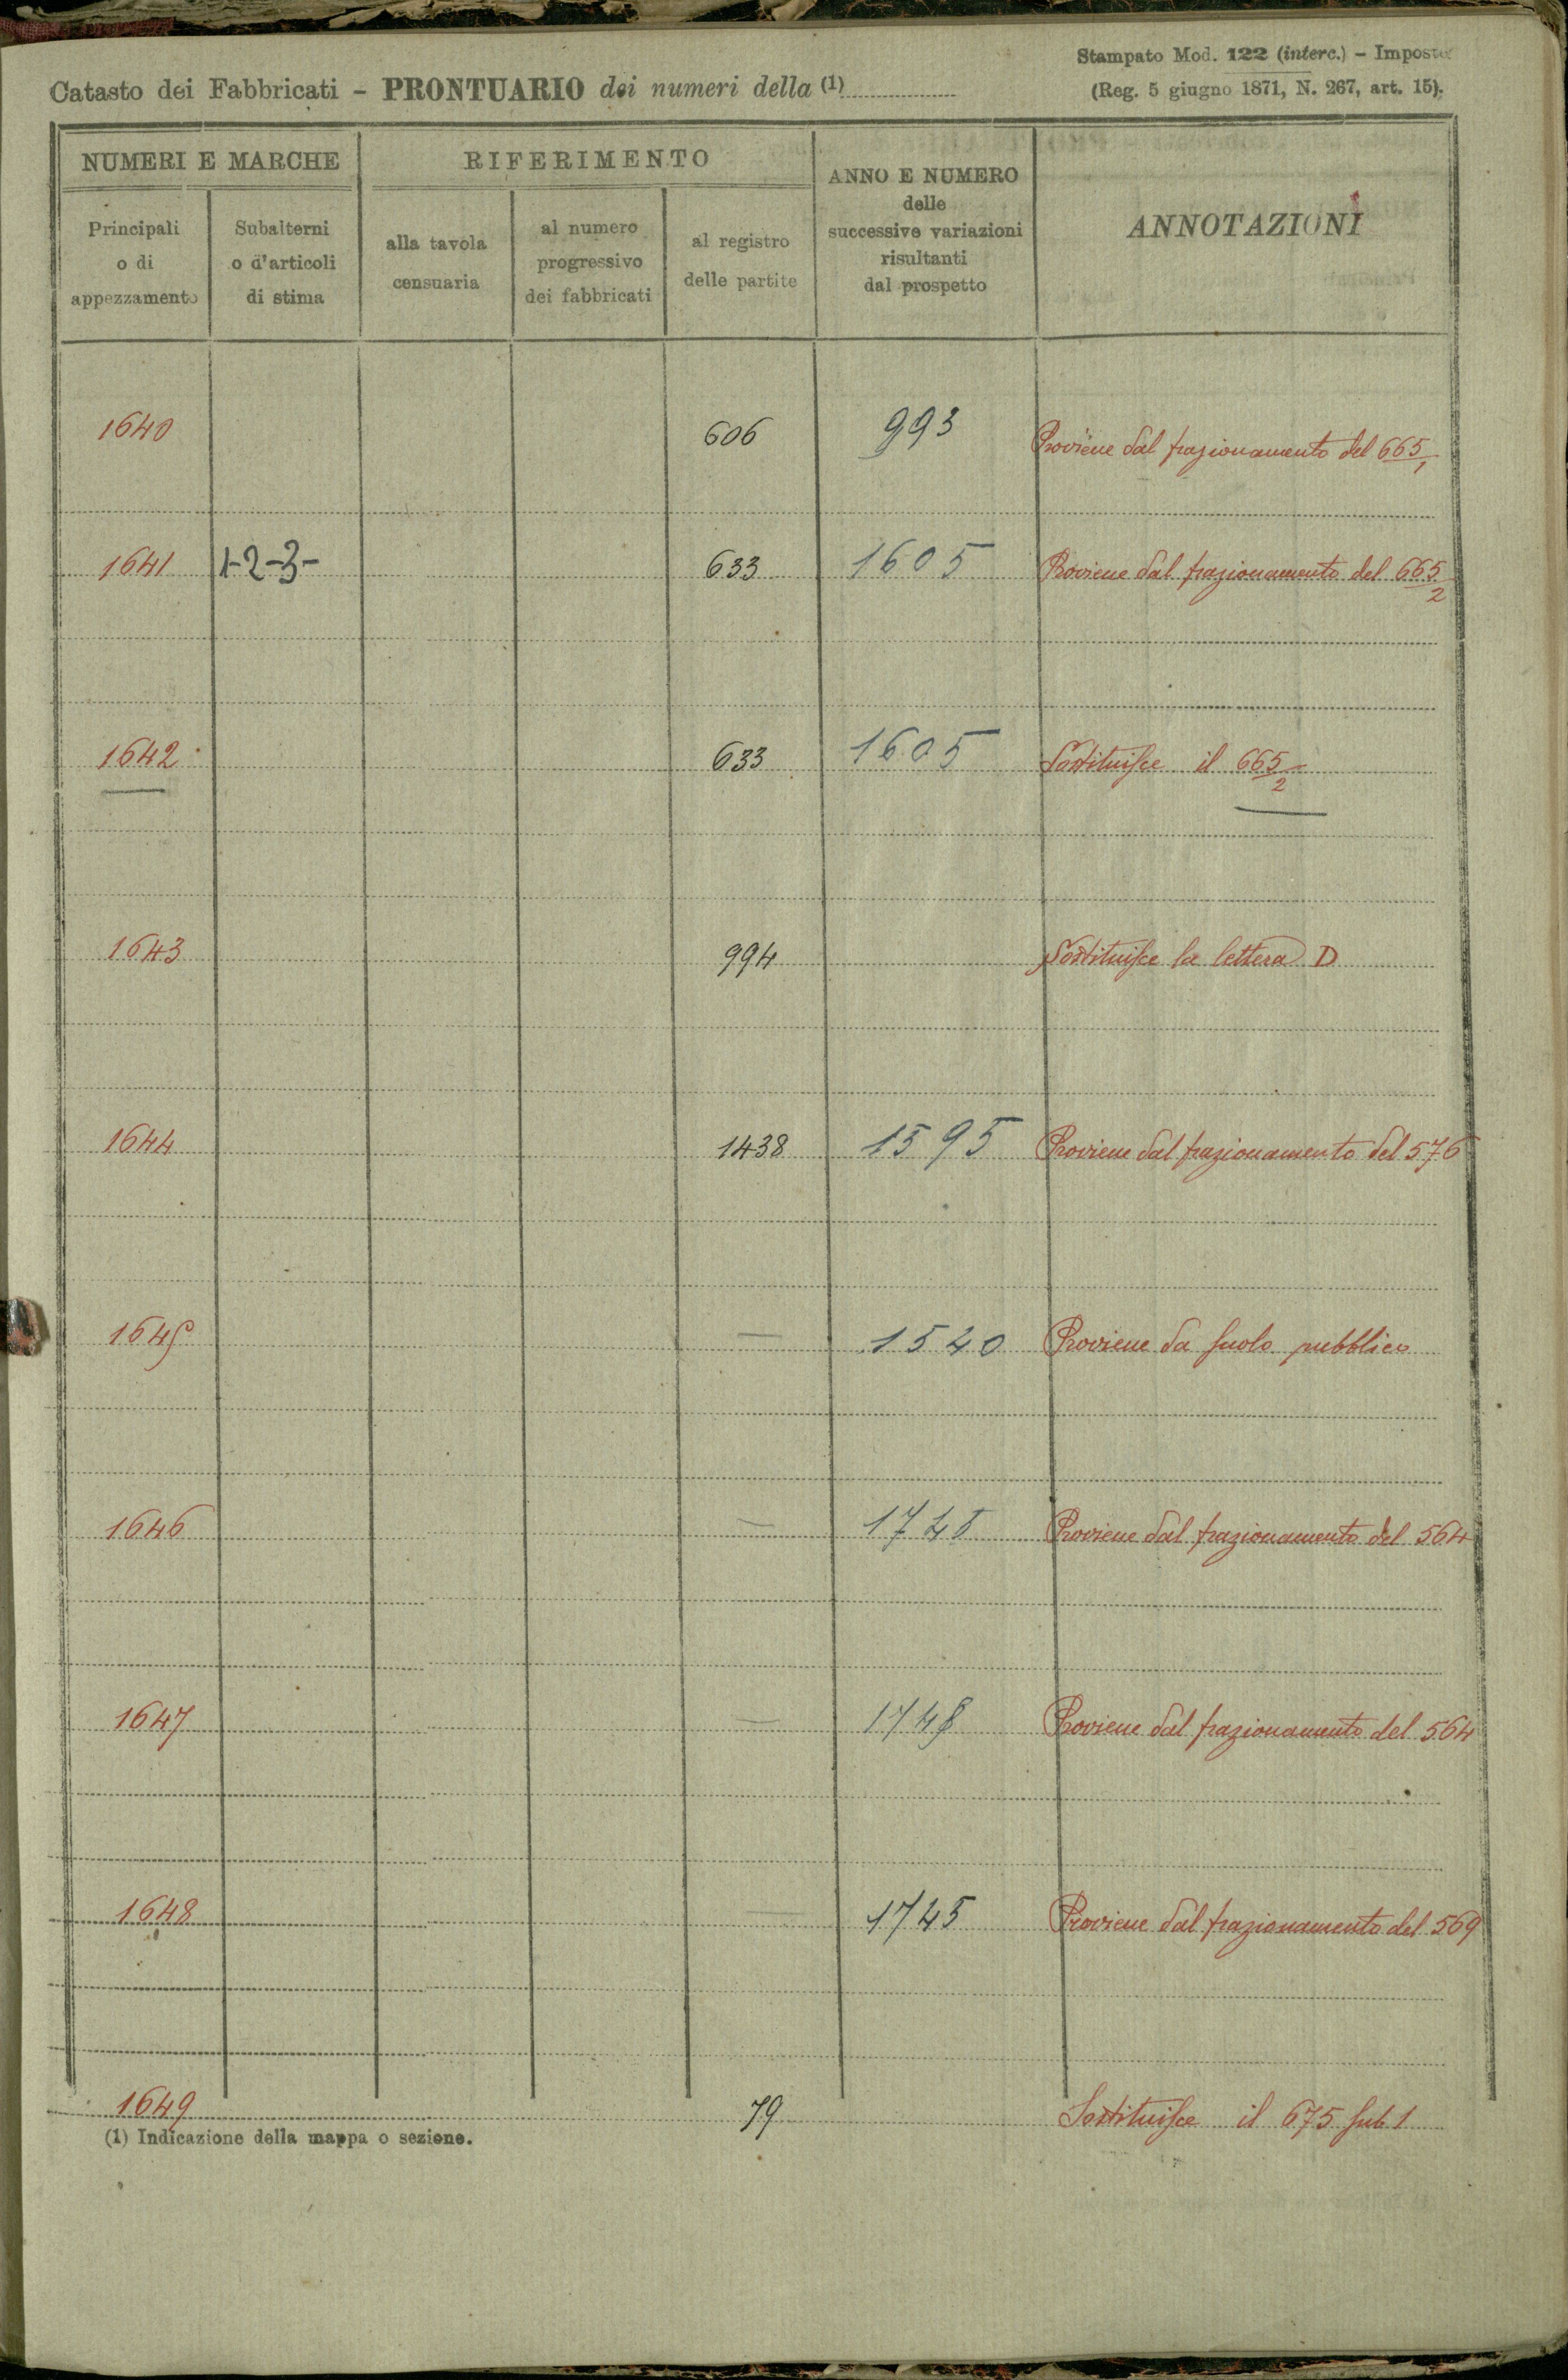 Stampato Mod. 122 (interc.) – Imposte
Catasto dei Fabbricati – PRONTUARIO dei numeri della (1)
(Reg. 5 giugno 1871, N. 267, art. 15).
NUMERI E MARCHE
RIFERIMENTO
ANNO E NUMERO
delle
successive variazioni
risultanti
dal prospetto
ANNOTAZIONI
Principali
o di
appezzamento
Subalterni
o d'articoli
di stima
alla tavola
censuaria
al numero
progressivo
dei fabbricati
al registro
delle partite
1640 606 993 Proviene dal frazionamento del 665/1
1641 1-2-3- 633 1605 Proviene dal frazionamento del 665/2
1642 633 1605 Sostituisce il 665/2
1643 994 Sostituisce la lettera D
1644 1438 1595 Proviene dal frazionamento del 576
1645 — 1540 Proviene da suolo pubblico
1646 — Proviene dal frazionamento del 564
1647 — 1748 Proviene dal frazionamento del 564
1648 — 1745 Proviene dal frazionamento del 569
1649 79 Sostituisce il 675 sub 1
(1) Indicazione della mappa o sezione.